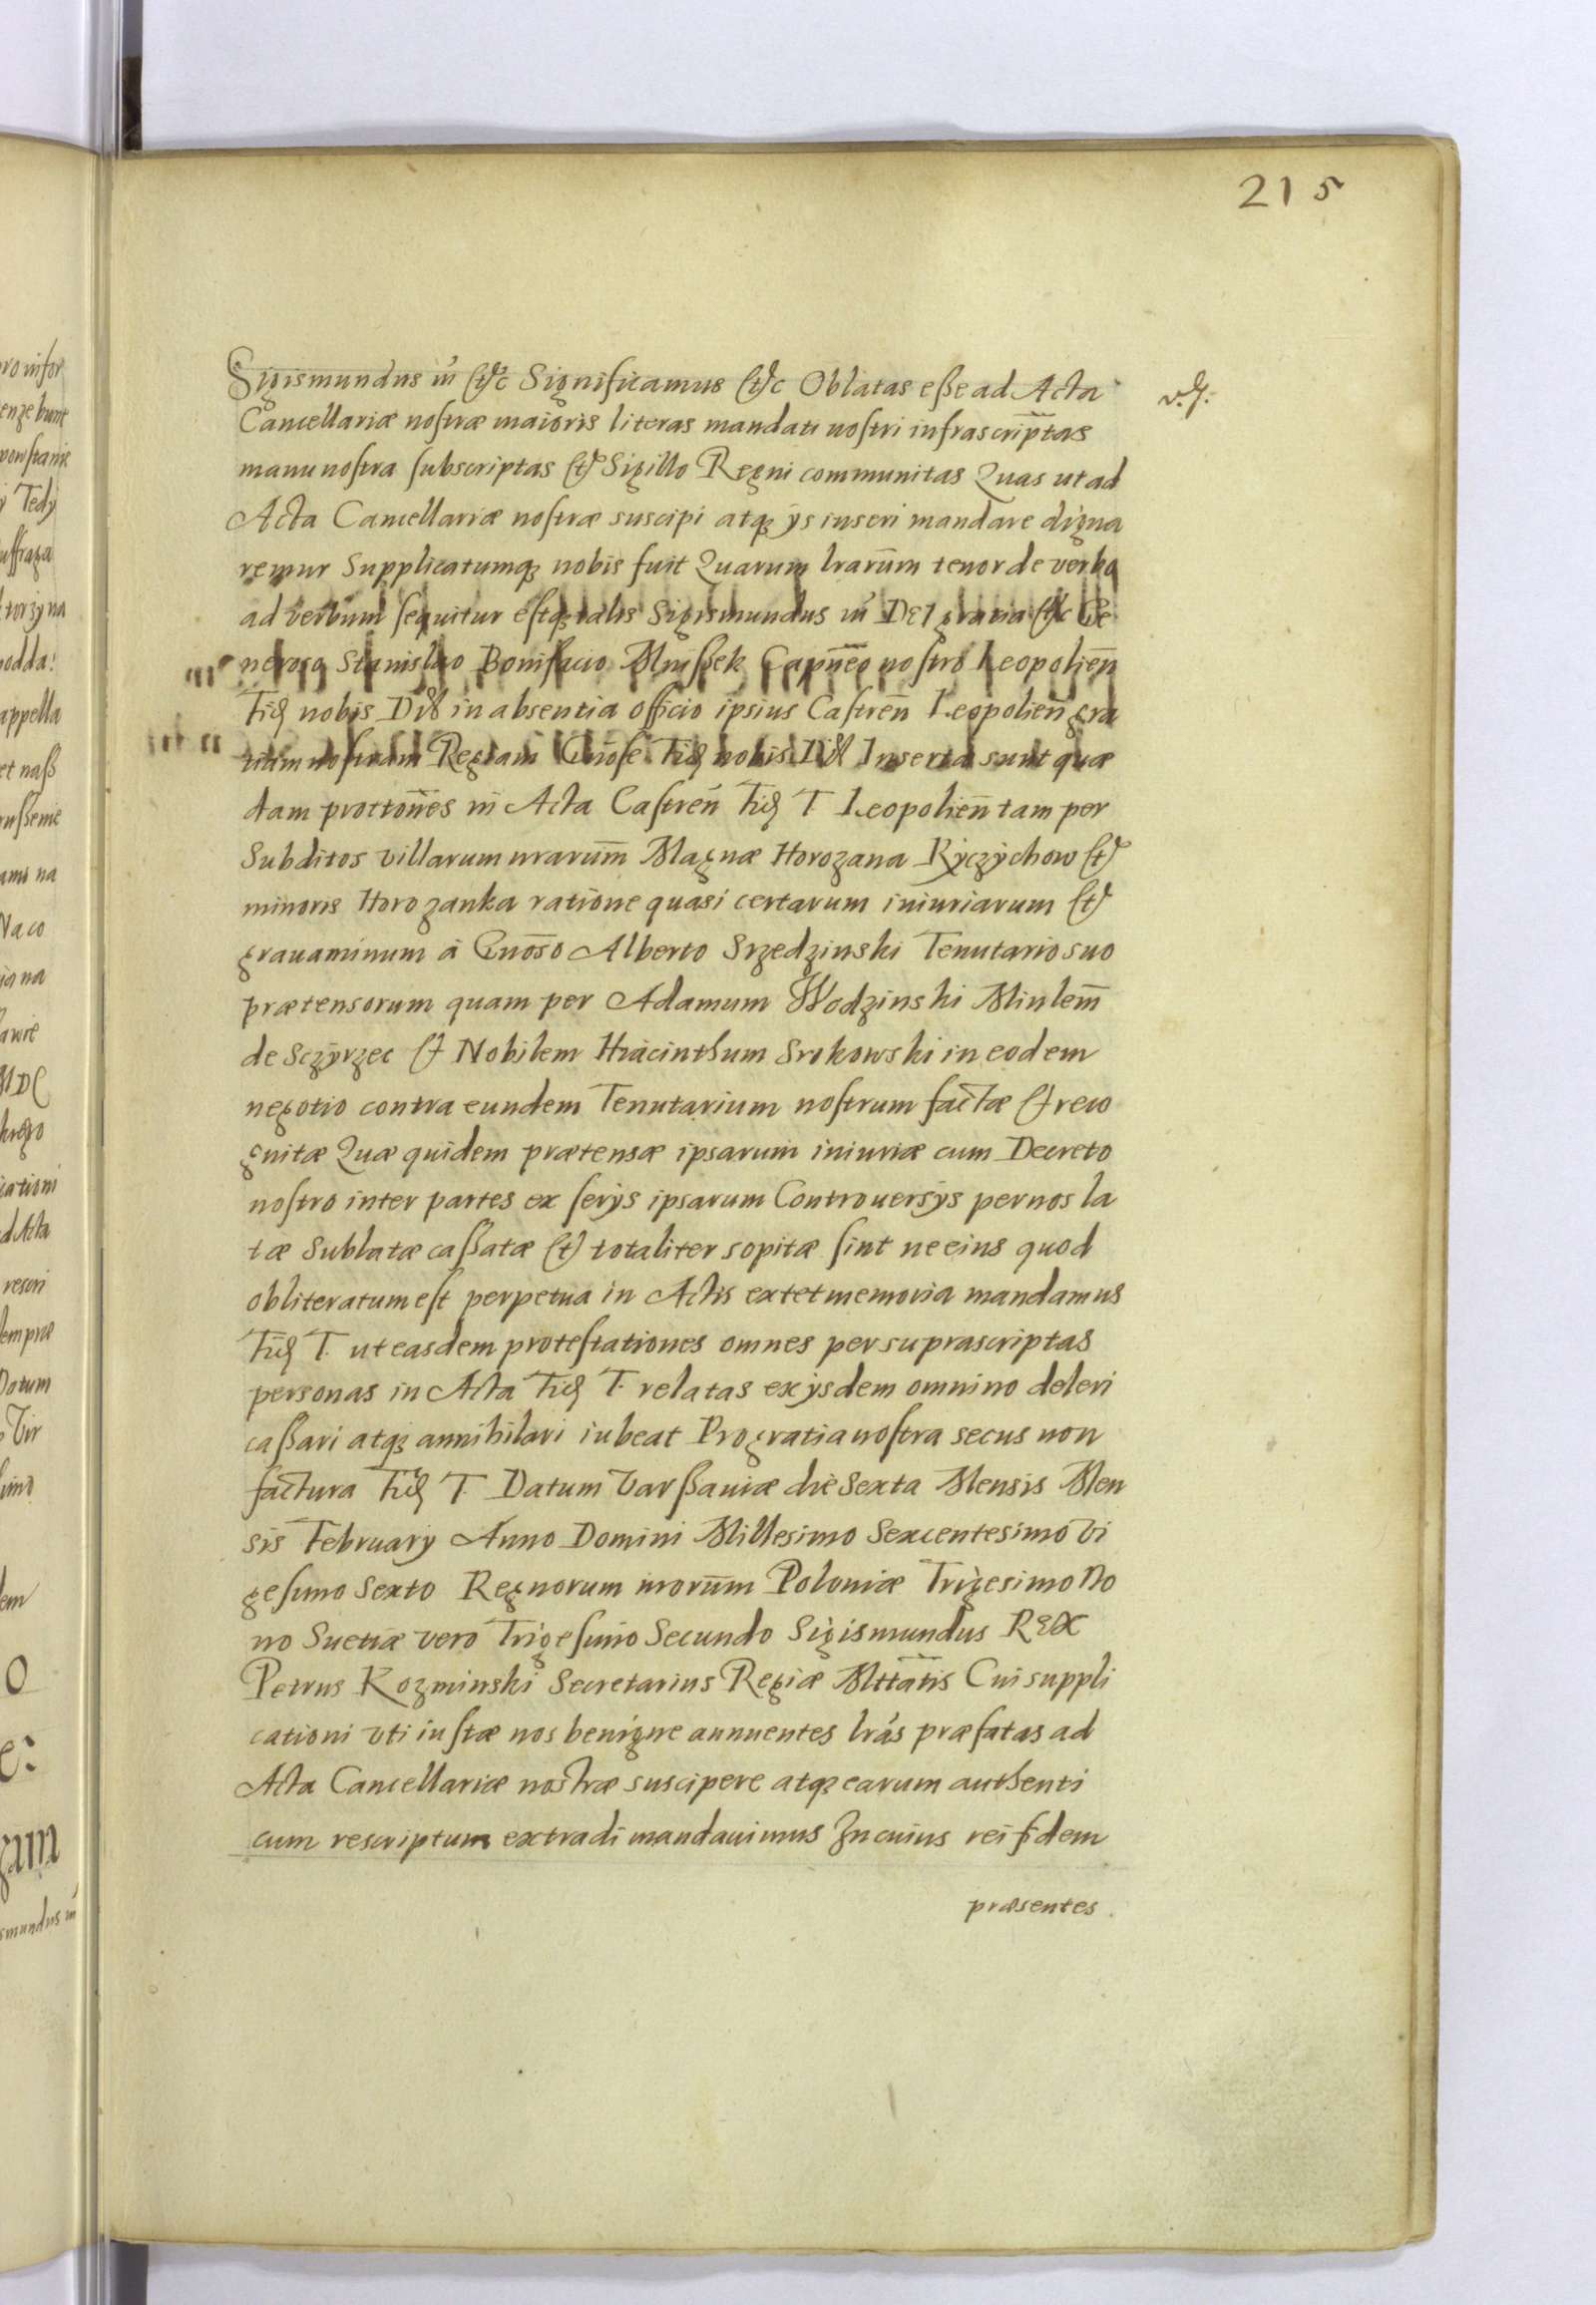 215
Sigismundus iii etc Significamus etc Oblatas eße ad Acta
Cancellariæ nostræ maioris literas mandati nostri infrascriptas
manu nostra subscriptas et Sigillo Regni communitas Quas ut ad
Acta Cancellariæ nostræ suscipi atq ijs inseri mandare digna
remur Supplicatumq nobis fuit Quarum lrarum tenor de verbo
ad verbum sequitur estq talis Sigismundus iii DEI gratia etc Ge
neroso Stanislao Bonifacio Mnißek Capneo nostro Leopolien
nobis in absentia officio ipsius Castren Leopolien gra
tiam nostram Regiam Gnose nobis Inserta sunt quæ
dam prottones in Acta Castren T. Leopolien tam per
Subditos villarum nrarum Magnæ Horozana Ryczychow et
minoris Horozanka ratione quasi certarum iniuriarum et
grauaminum à Gnoso Alberto Srzedzinski Tenutario suo
prætensorum quam per Adamum Wodzinski Minlem
de Sczyrzec et Nobilem Hiacinthum Srokowski in eodem
negotio contra eundem Tenutarium nostrum factæ et reco
gnitæ Quæ quidem prætensæ ipsarum iniuriæ cum Decreto
nostro inter partes ex serijs ipsarum Controuersijs per nos la
tæ Sublatæ caßatæ et totaliter sopitæ sint ne eius quod
obliteratum est perpetua in Actis extet memoria mandamus
T. ut easdem protestationes omnes per suprascriptas
personas in Acta T. relatas ex ijsdem omnino deleri
caßari atq annihilari iubeat Pro gratia nostra secus non
factura T. Datum Varßauiæ die Sexta Mensis Men
sis February Anno Domini Millesimo Sexcentesimo Vi
gesimo Sexto Regnorum nrorum Poloniæ Trigesimo No
no Suetiæ vero Trigesimo Secundo Sigismundus REX
Petrus Kozminski Secretarius Regiæ Mttatis Cui suppli
cationi uti iustæ nos benigne annuentes lras præfatas ad
Acta Cancellariæ nostræ suscipere atq earum authenti
cum rescriptum extradi mandauimus In cuius rei fidem
præsentes